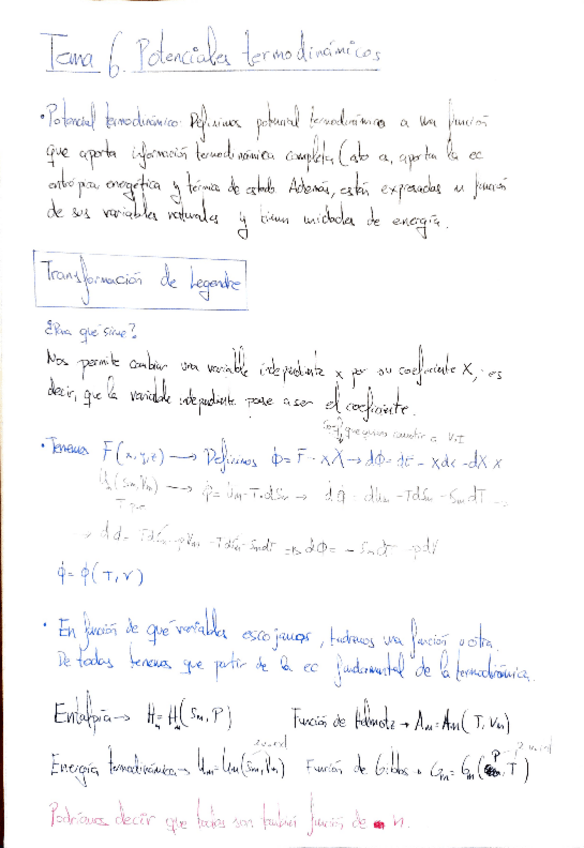 Tema 6. Potenciales termodinámicos
• Potencial termodinámico: Definimos potencial termodinámico a una función
que aporta información termodinámica completa (esto es, aporta la ec
entrópica energética y térmica de estado. Además, están expresadas en función
de sus variables naturales y tienen unidades de energía.
Transformación de Legendre
¿Para qué sirve?
Nos permite cambiar una variable independiente x por su coeficiente X, es
decir, que la variable independiente pase a ser el coeficiente.
coef que queremos convertir a V.I
• Tenemos F(x,y,z) → Definimos ϕ = F - xX → dϕ = dF - Xdx - dX x
Um(Sm,Vm) → ϕ = Um - T·dSm → dϕ = dUm - TdSm - SmdT →
→ dϕ = TdSm - pdVm - TdSm - SmdT => dϕ = - SmdT - pdV
ϕ = ϕ(T,V)
• En función de qué variables escojamos, tendremos una función o otra.
De todas tenemos que partir de la ec fundamental de la termodinámica.
Entalpía → Hm = Hm(Sm,P) Función de Helmotz → Am = Am(T,Vm)
Energía termodinámica → Um = Um(Sm,Vm) Función de Gibbs → Gm = Gm(P,T)
Podríamos decir que todas son también función de n.